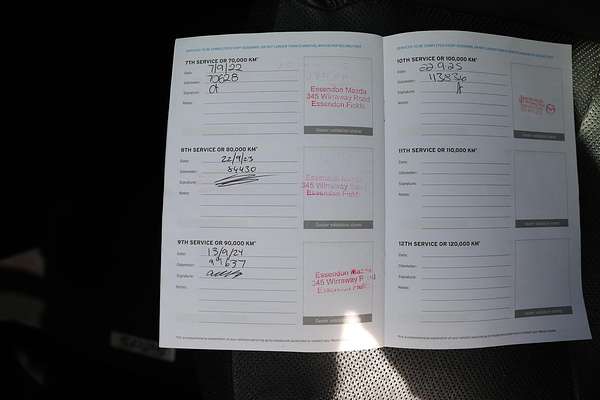 7TH SERVICE OR 70,000 KM*
Date: 7/9/22
Odometer: 70628
Signature:
Notes:
Essendon Mazda
345 Wirraway Road
Essendon Fields
Dealer validation stamp
8TH SERVICE OR 80,000 KM*
Date: 22/9/23
Odometer: 84430
Signature:
Notes:
Essendon Mazda
345 Wirraway Road
Essendon Fields
Dealer validation stamp
9TH SERVICE OR 90,000 KM*
Date: 13/9/24
Odometer:
Signature:
Notes:
Essendon Mazda
345 Wirraway R
Essendon Fields
Dealer validation stamp
10TH SERVICE OR 100,000 KM*
Date: 22.9.25
Odometer: 113836
Signature:
Notes:
Dealer validation stamp
11TH SERVICE OR 110,000 KM*
Date:
Odometer:
Signature:
Notes:
Dealer validation stamp
12TH SERVICE OR 120,000 KM*
Date:
Odometer:
Signature:
Notes:
Dealer validation stamp